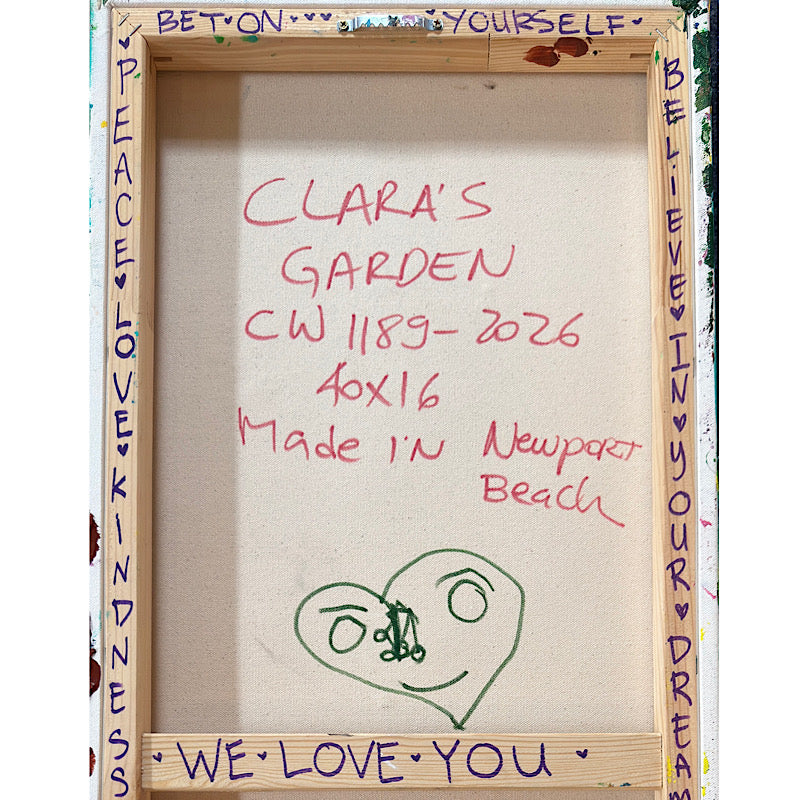 BET • ON ♥♥♥ ♥ YOURSELF •
PEACE ♥ LOVE ♥ KINDNESS
CLARA'S
GARDEN
CW 1189-2026
40x16
Made IN Newport
Beach
BELIEVE ♥ IN ♥ YOUR ♥ DREAM
♥ WE ♥ LOVE ♥ YOU ♥